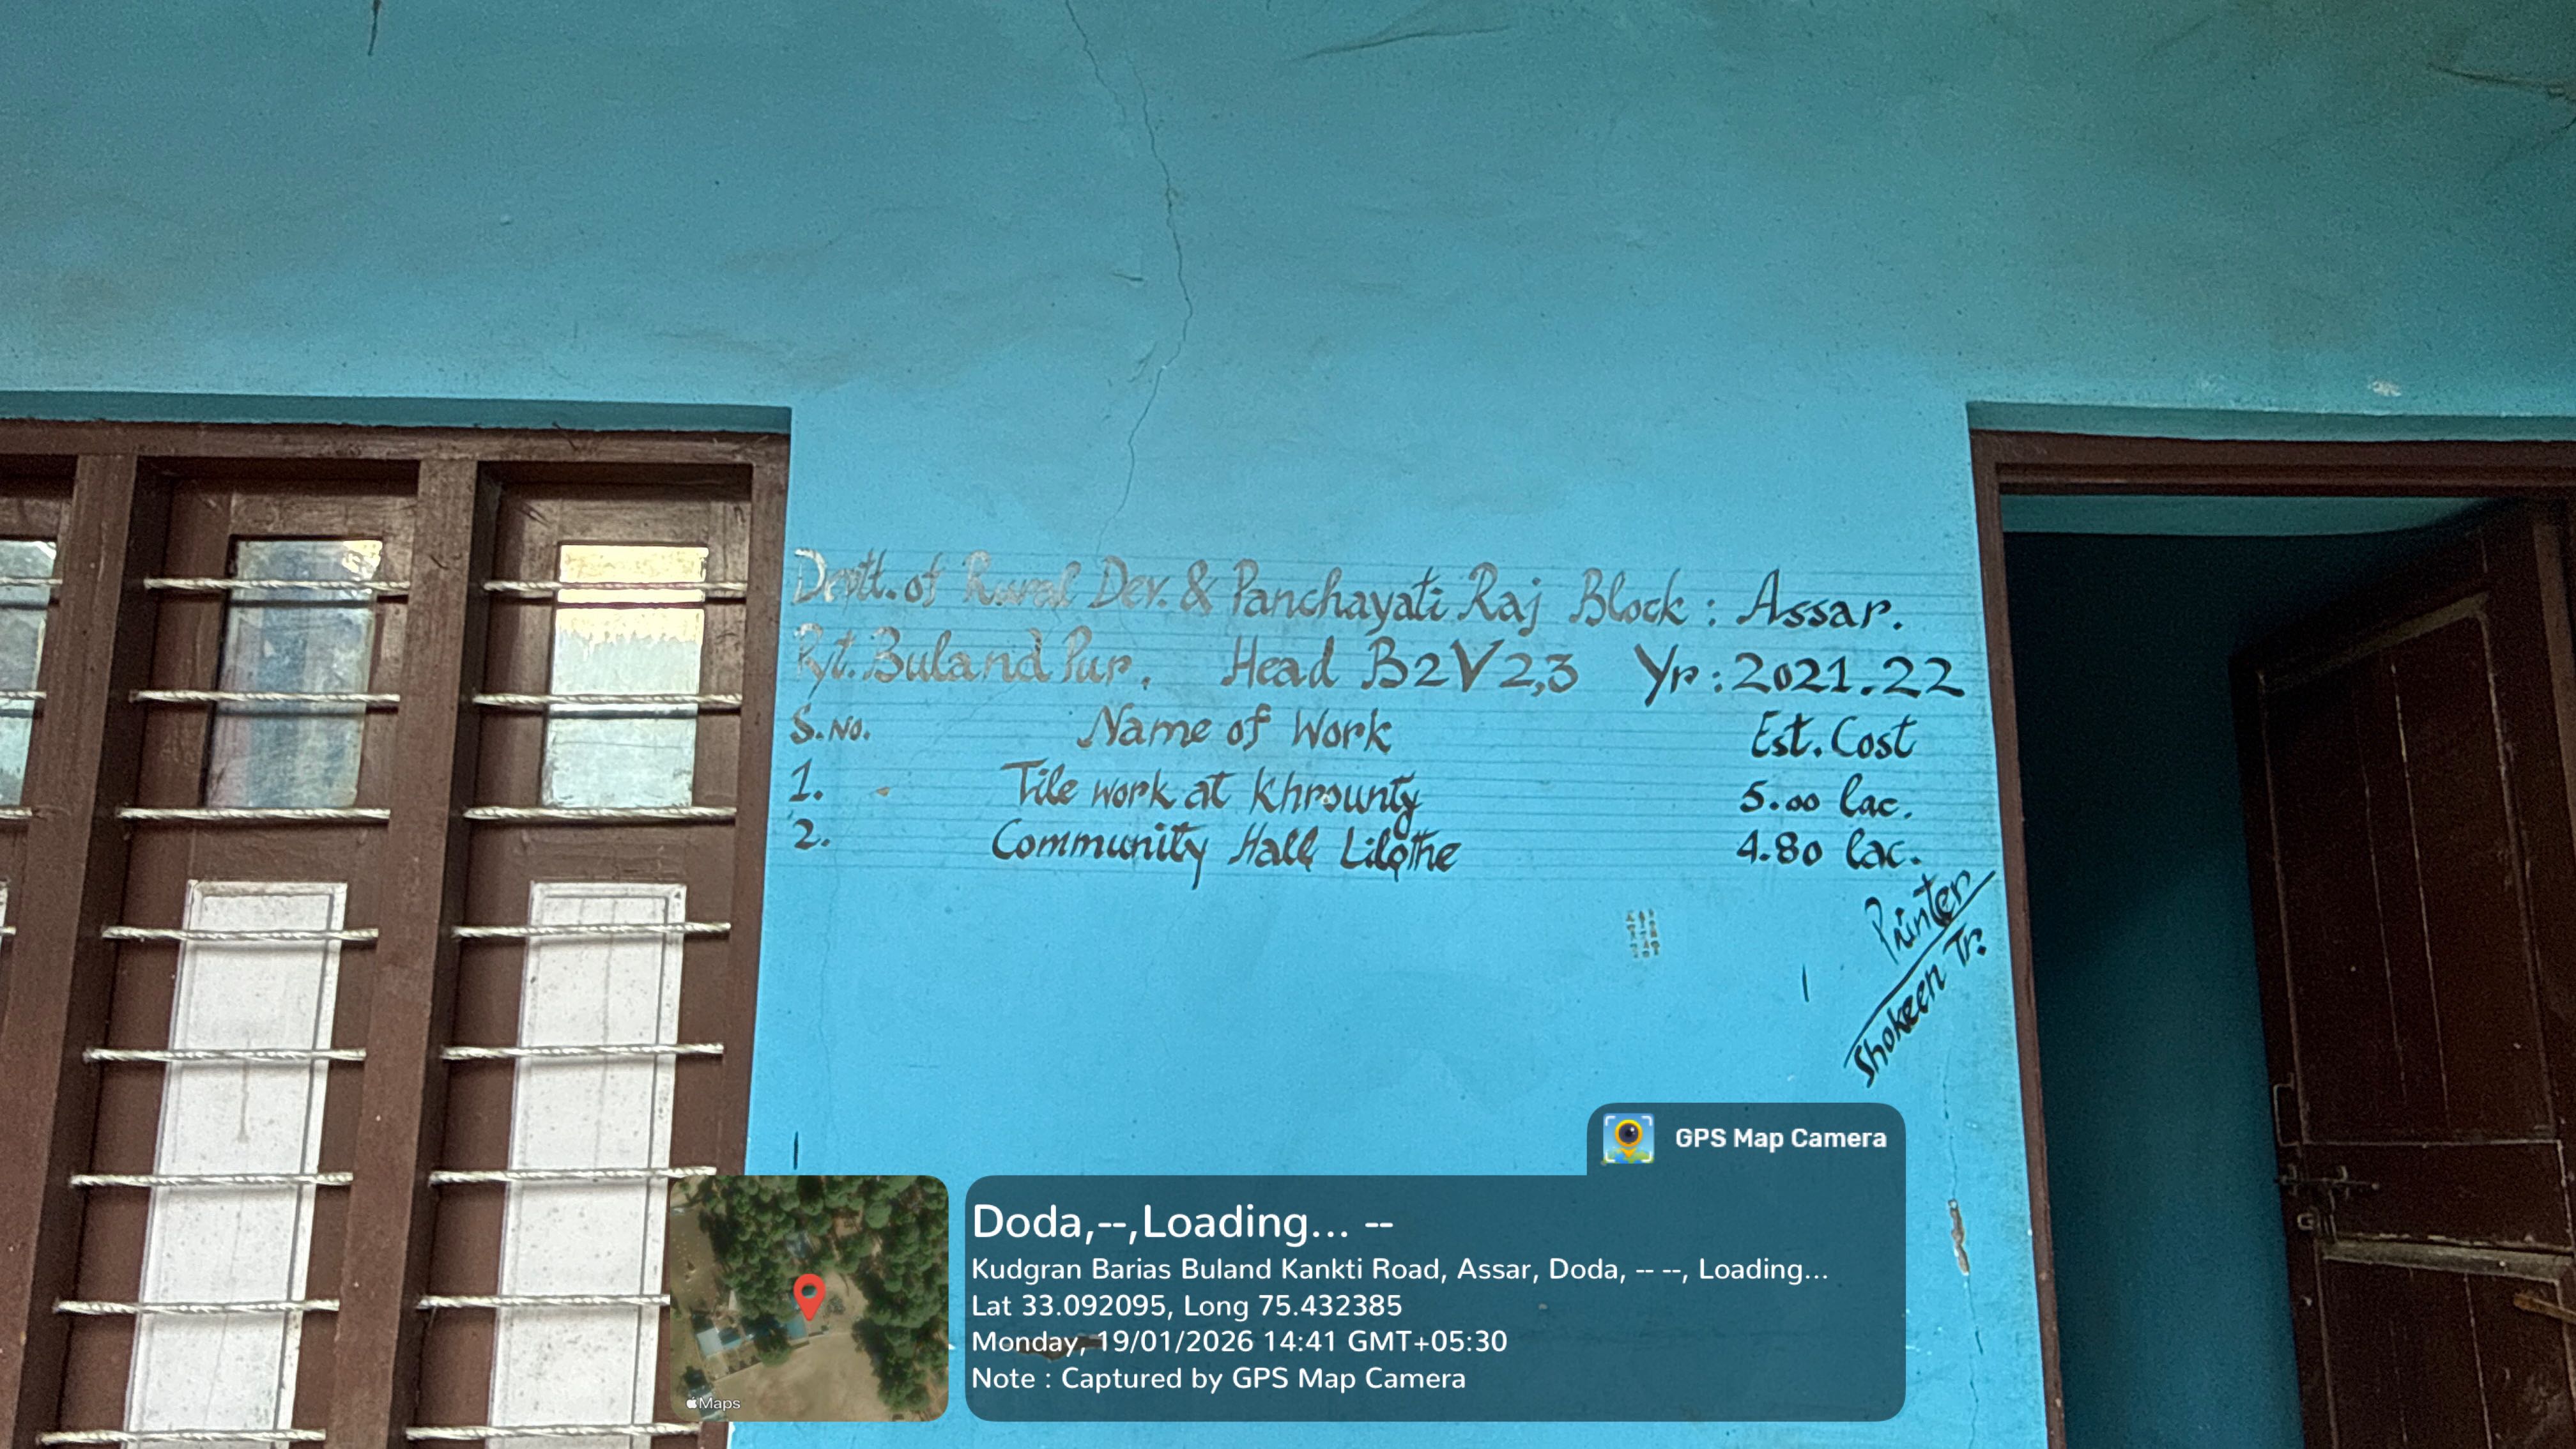 Deptt. of Rural Dev. & Panchayati Raj Block : Assar.
Pyt. Buland Pur. Head B2V2,3 Yr : 2021.22
S.No. Name of Work Est. Cost
1. Tile work at Khrounty 5.00 lac.
2. Community Hall Lilothe 4.80 lac.
Printer
Shokeen Tr.
GPS Map Camera
Doda,--,Loading... --
Kudgran Barias Buland Kankti Road, Assar, Doda, -- --, Loading...
Lat 33.092095, Long 75.432385
Monday, 19/01/2026 14:41 GMT+05:30
Note : Captured by GPS Map Camera
Maps